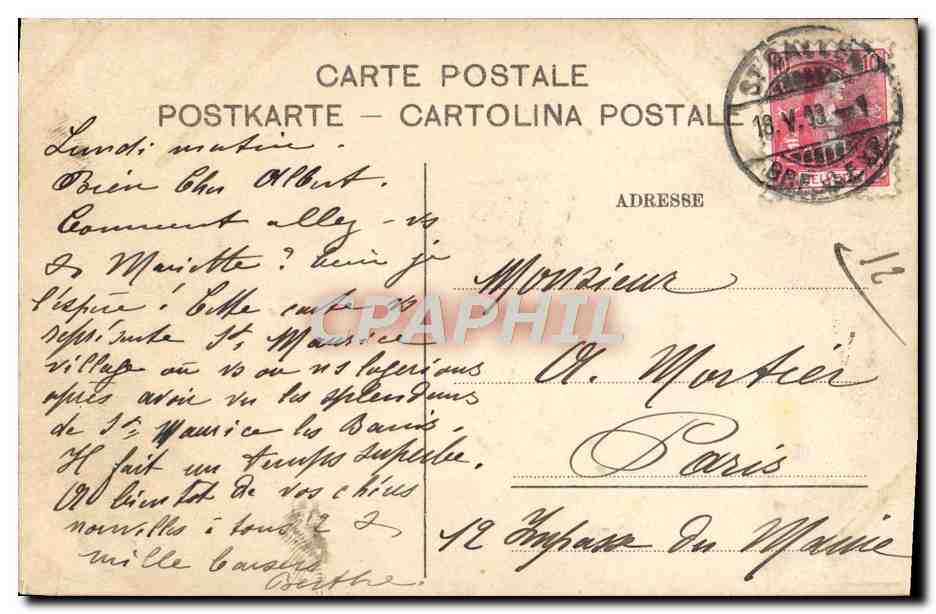 CARTE POSTALE
POSTKARTE — CARTOLINA POSTALE
ADRESSE
10
18.V.
Lundi matin.
Bien Cher Albert.
Comment allez-vs
& Mariette? bien je
l'espère! Cette carte vs
représente St. Maurice
village où vs ou ns logerions
après avoir vu les splendeurs
de St. Maurice les Bains.
Il fait un temps superbe.
A bientot de vos chères
nouvelles à tous 2 &
mille baisers
Berthe.
12
Monsieur
A. Mortier
Paris
12 Impasse du Maine
CPAPHIL